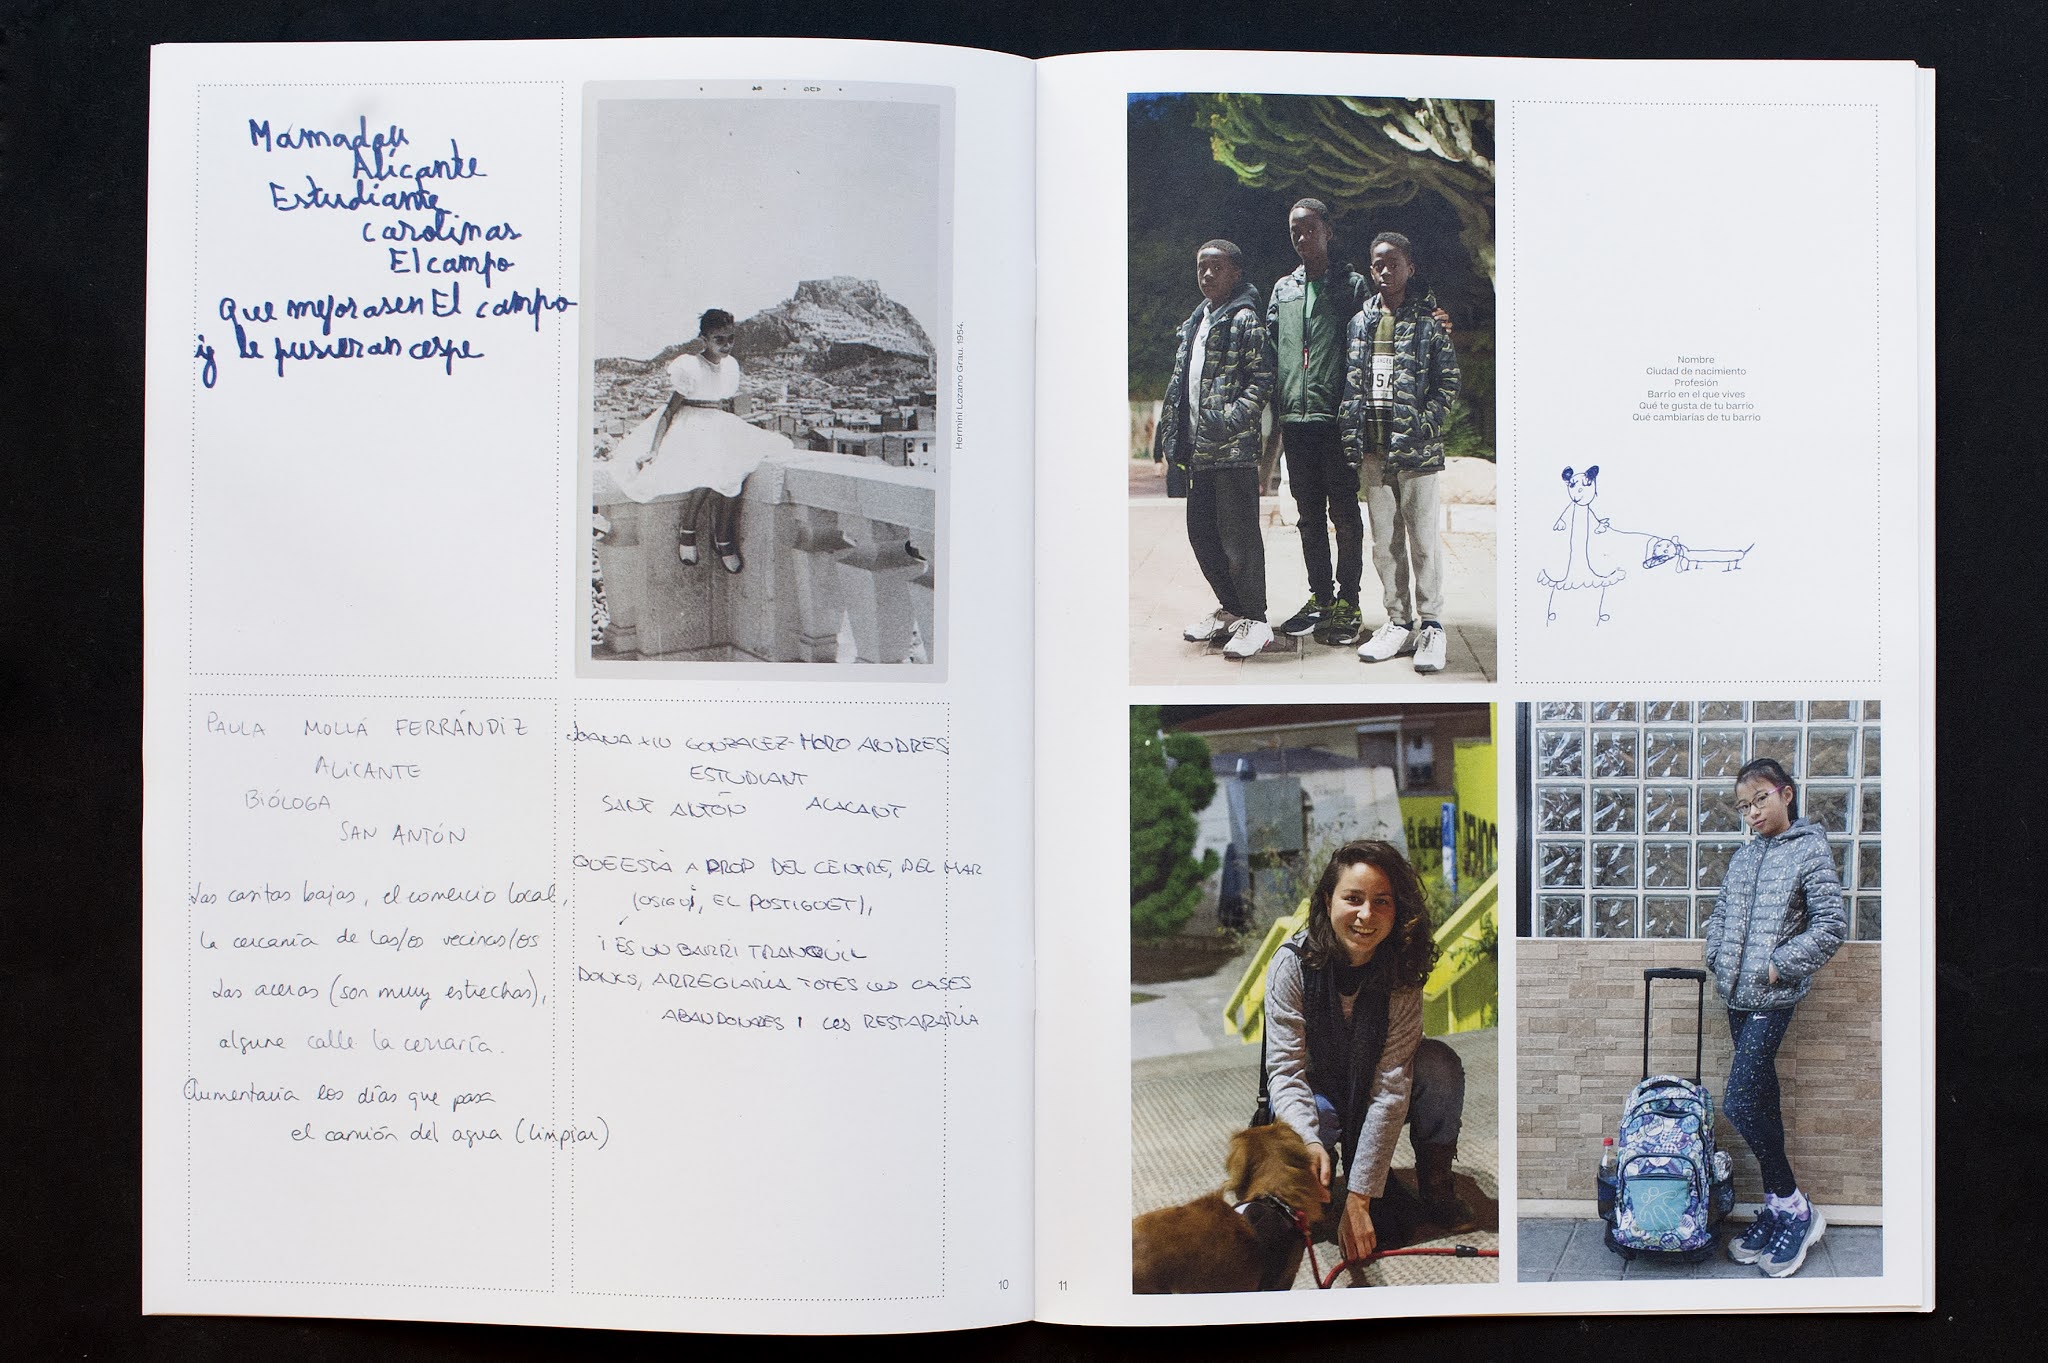 Mamadou
Alicante
Estudiante
carolinas
El campo
Que mejorasen El campo
y le pusieran cespe
Hermini Lozano Grau. 1954.
PAULA MOLLÁ FERRÁNDIZ
ALICANTE
BIÓLOGA
SAN ANTÓN
Las casitas bajas, el comercio local,
la cercanía de las/os vecinas/os
Las aceras (son muy estrechas),
alguna calle la cerraría.
Aumentaría los días que pasa
el camión del agua (limpiar)
JOANA XIU GONZALEZ-MORO ANDRES
ESTUDIANT
SANT ANTÓN ALACANT
QUE ESTÀ A PROP DEL CENTRE, DEL MAR
(OSIGUI, EL POSTIGUET),
I ÉS UN BARRI TRANQUIL
DONCS, ARREGLARIA TOTES LES CASES
ABANDONADES I LES RESTARARIA
10
11
USA
Nombre
Ciudad de nacimiento
Profesión
Barrio en el que vives
Qué te gusta de tu barrio
Qué cambiarías de tu barrio